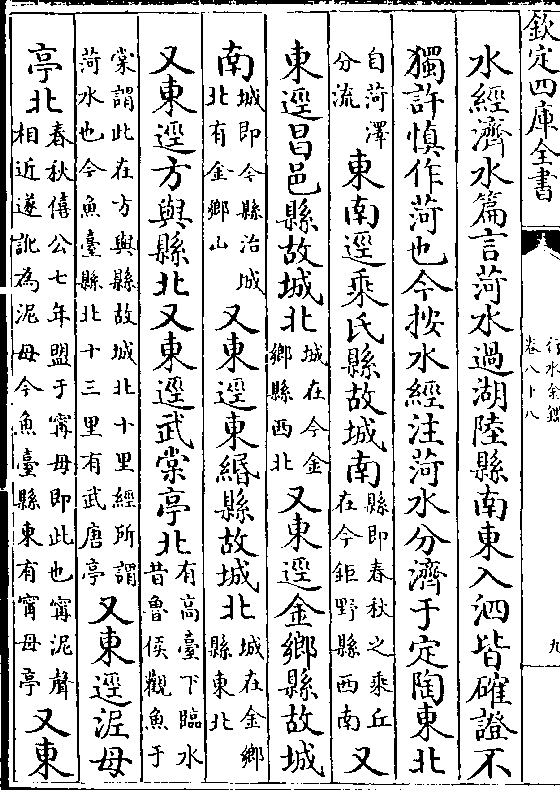 欽定四庫全書
行水金鑑
卷八十八
九
水經濟水篇言菏水過湖陸縣南東入泗皆確證不
獨許慎作菏也今按水經注菏水分濟于定陶東北
自菏澤分流東南逕乘氏縣故城南縣即春秋之乘丘在今鉅野縣西南又
東逕昌邑縣故城北城在今金鄉縣西北又東逕金鄉縣故城
南城即今縣治城北有金鄉山又東逕東緡縣故城北城在金鄉縣東北
又東逕方與縣北又東逕武棠亭北有高臺下臨水昔魯侯觀魚于
棠謂此在方與縣故城北十里經所謂菏水也今魚臺縣北十三里有武唐亭又東逕泥母
亭北春秋僖公七年盟于甯母即此也甯泥聲相近遂訛為泥母今魚臺縣東有甯母亭又東